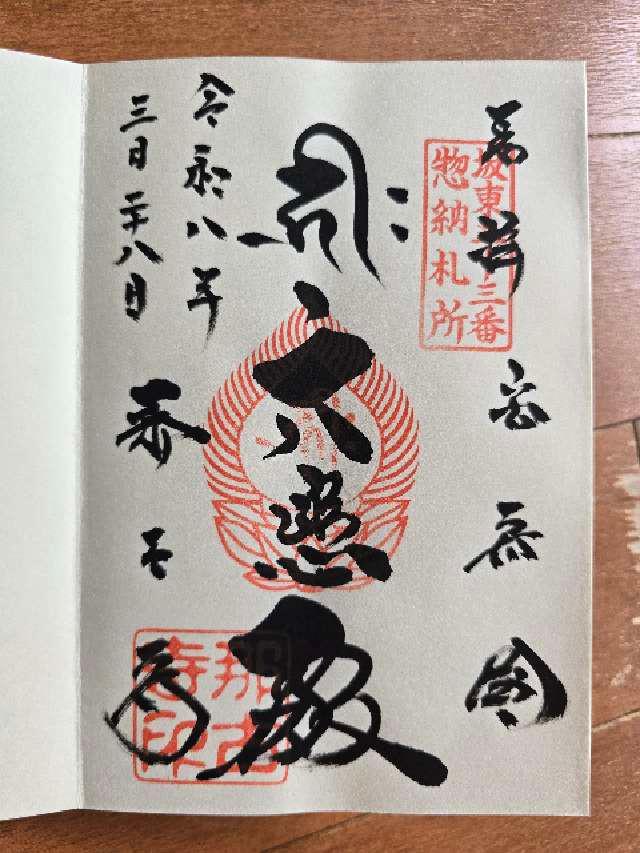 奉拝
坂東三十三番
惣納札所
安房国
大悲殿
令和八年
三月二十八日
那古寺
那古
寺印